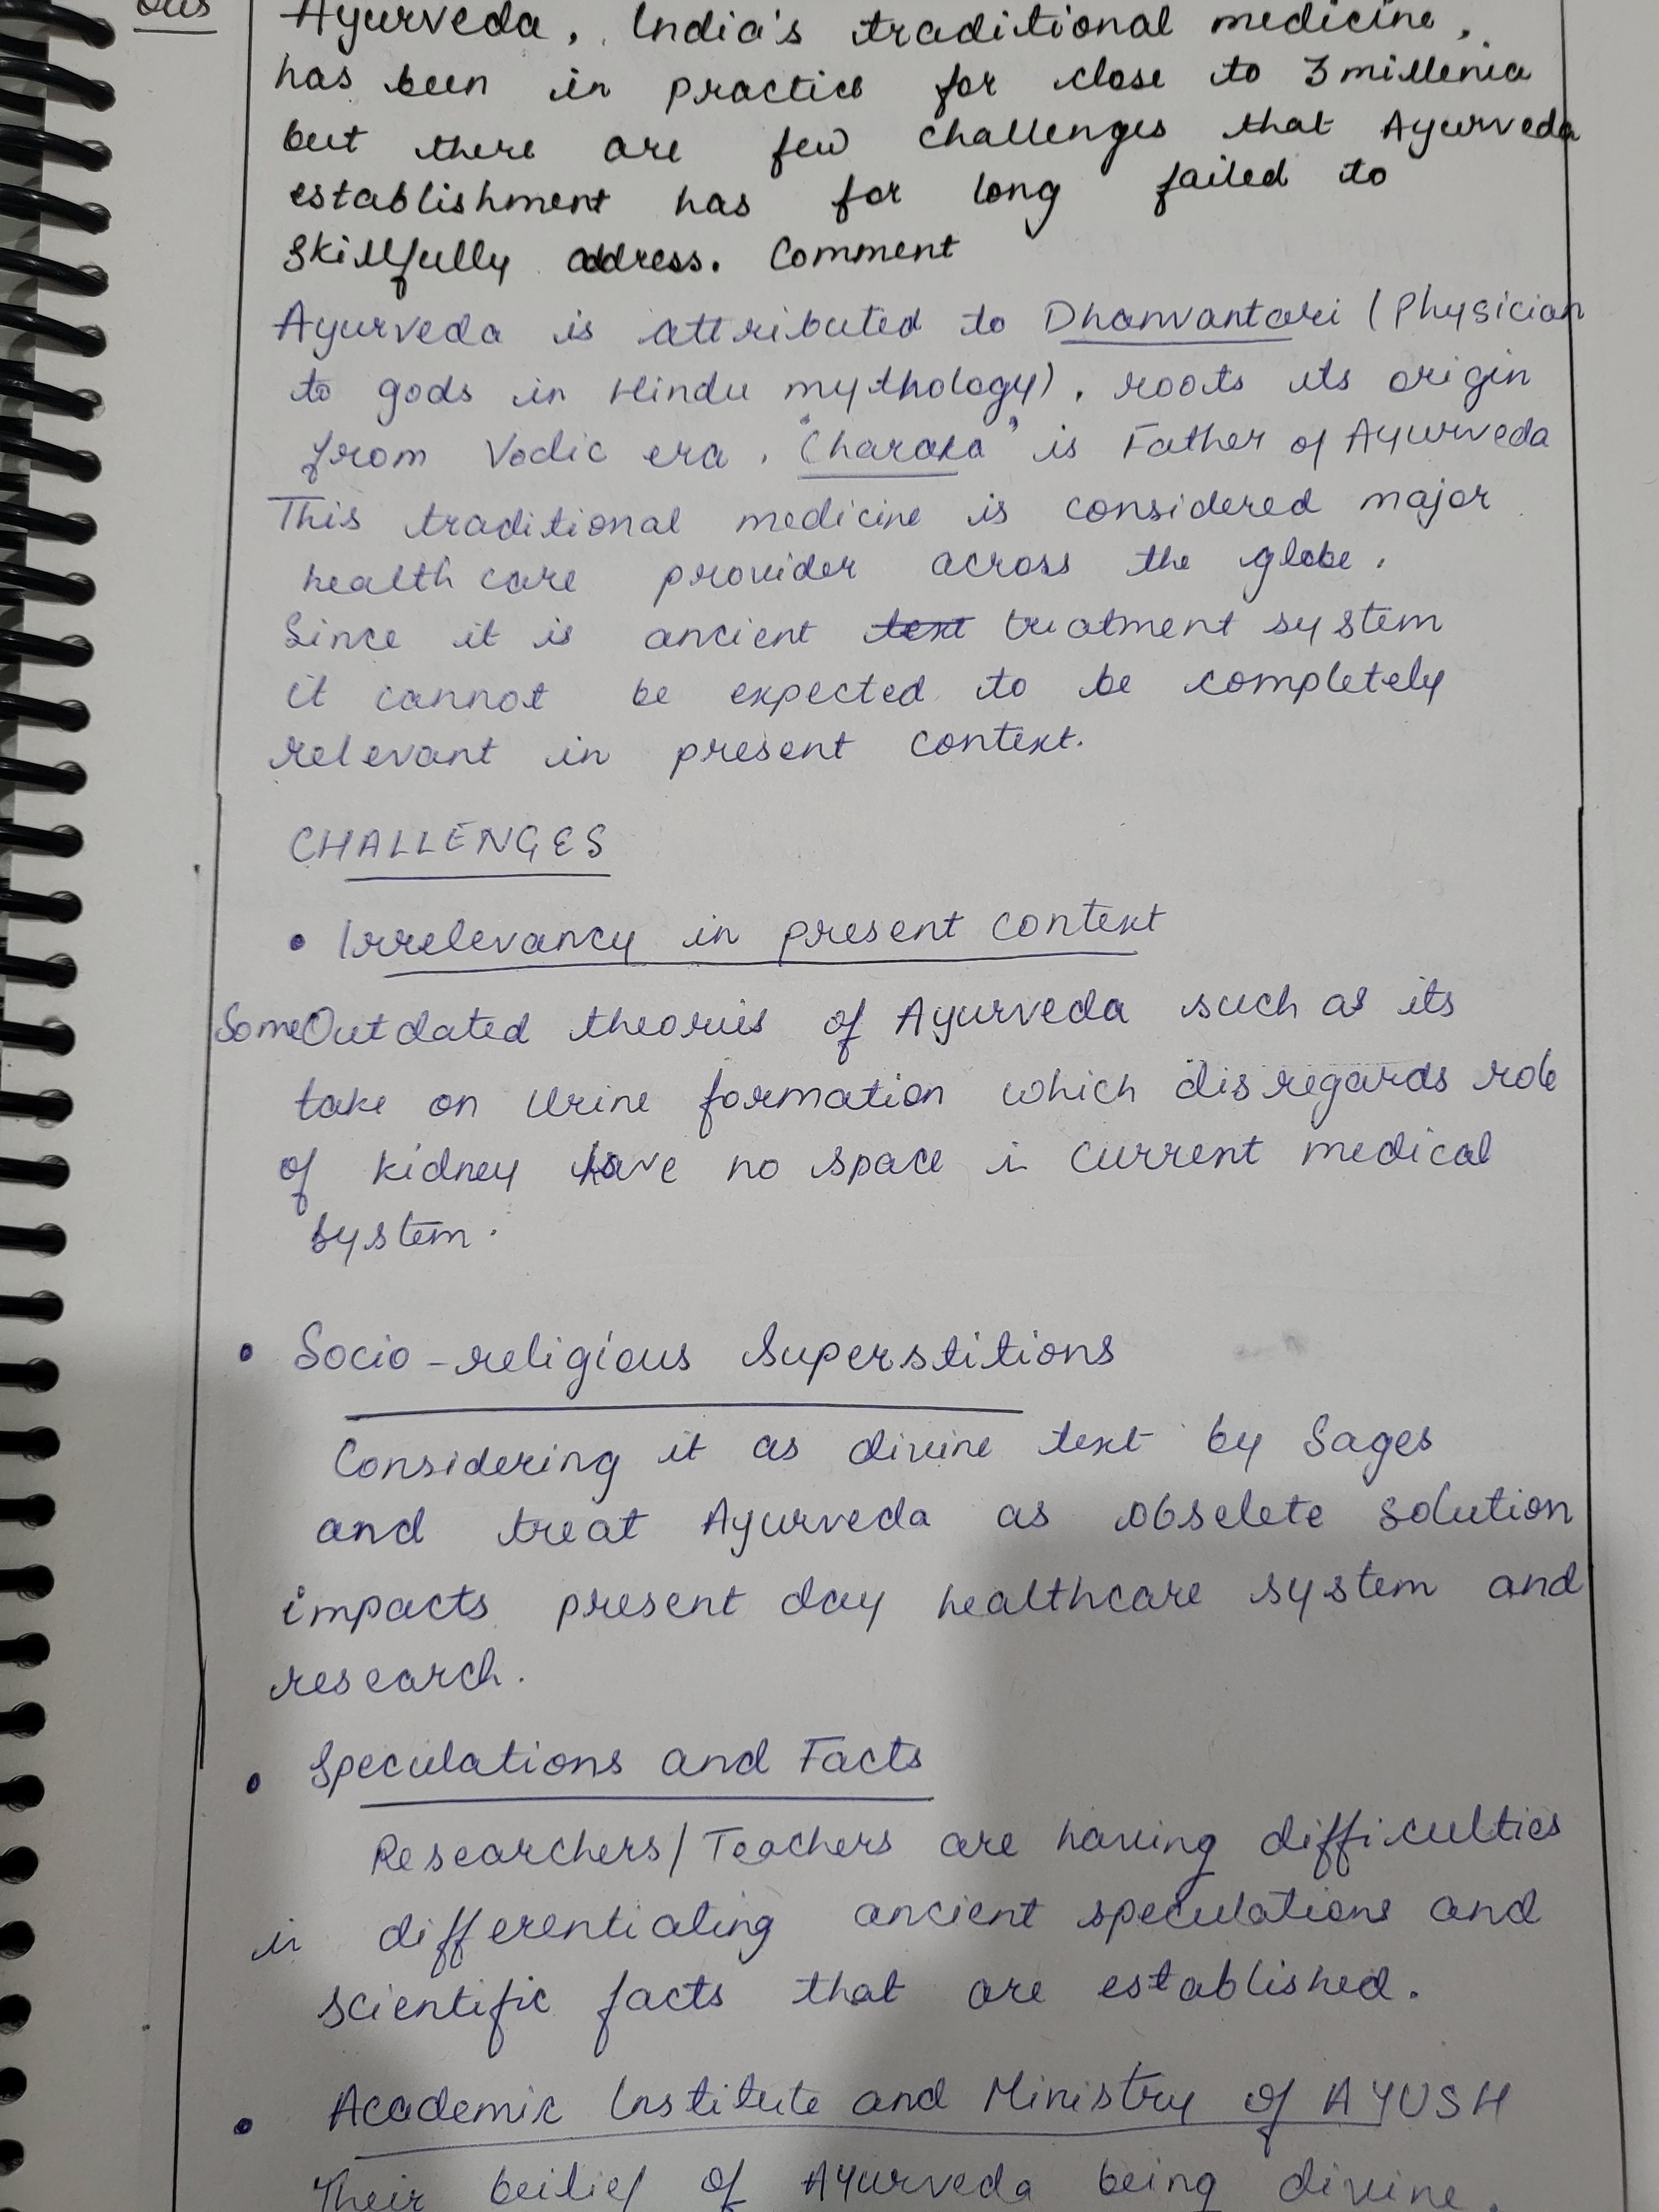 Ous
Ayurveda, India's traditional medicine,
has been in practice for close to 3 millenia
but there are few challenges that Ayurveda
establishment has for long failed to
skillfully address. Comment
Ayurveda is attributed to Dhanvantari (Physician
to gods in Hindu mythology), roots its origin
from Vedic era. "Charaka" is Father of Ayurveda
This traditional medicine is considered major
health care provider across the globe.
Since it is ancient text treatment system
it cannot be expected to be completely
relevant in present context.
CHALLENGES
• Irrelevancy in present context
Some Outdated theories of Ayurveda such as its
take on Urine formation which disregards role
of kidney have no space in current medical
system.
• Socio-religious Superstitions
Considering it as divine text by Sages
and treat Ayurveda as obselete solution
impacts present day healthcare system and
research.
• Speculations and Facts
Researchers/Teachers are having difficulties
in differentiating ancient speculations and
scientific facts that are established.
• Academic Institute and Ministry of AYUSH
Their beilief of Ayurveda being divine.